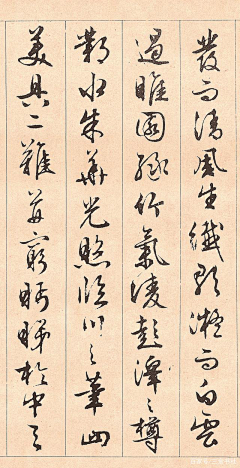 發而清風生纖歌凝而白雲
遏睢園綠竹氣凌彭澤之樽
鄴水朱華光照臨川之筆四
美具二難并窮睇眄於中天